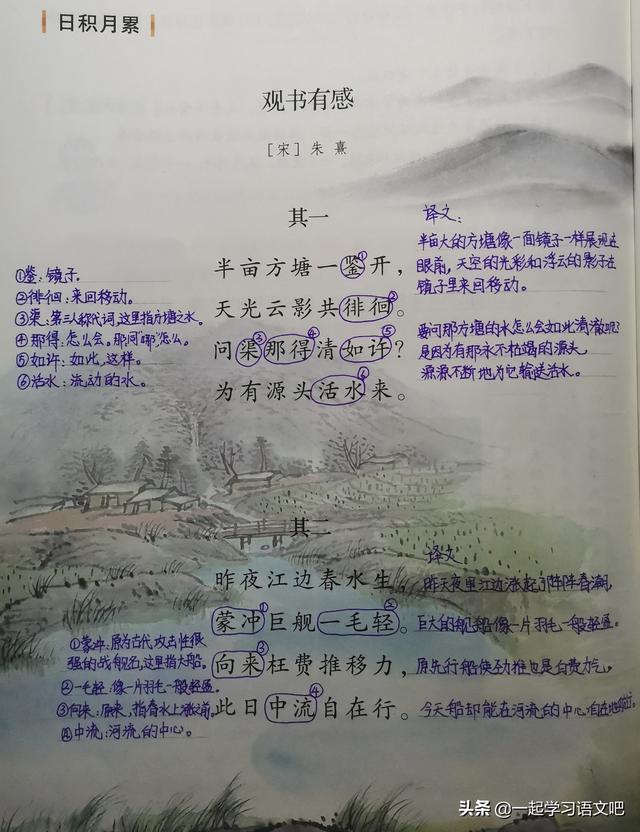 日积月累
观书有感
[宋]朱熹
其一
半亩方塘一鉴①开，
天光云影共徘徊②。
问渠③那得④清如许⑤？
为有源头活水⑥来。
①鉴：镜子。
②徘徊：来回移动。
③渠：第三人称代词，这里指方塘之水。
④那得：怎么会。那同“哪”，怎么。
⑤如许：如此，这样。
⑥活水：流动的水。
译文：
半亩大的方塘像一面镜子一样展现在
眼前，天空的光彩和浮云的影子在
镜子里来回移动。
要问那方塘的水怎么会如此清澈呢？
是因为有那永不枯竭的源头，
源源不断地为它输送活水。
其二
昨夜江边春水生，
蒙冲①巨舰一毛轻②。
向来③枉费推移力，
此日中流④自在行。
①蒙冲：原为古代攻击性很
强的战舰名，这里指大船。
②一毛轻：像一片羽毛一般轻盈。
③向来：原来，指春水上涨之前。
④中流：河流的中心。
译文
昨天夜里江边涨起了阵阵春潮，
巨大的舰船像一片羽毛一般轻盈。
原先行船使劲推也是白费力气，
今天船却能在河流的中心自在地
头条 @一起学习语文吧